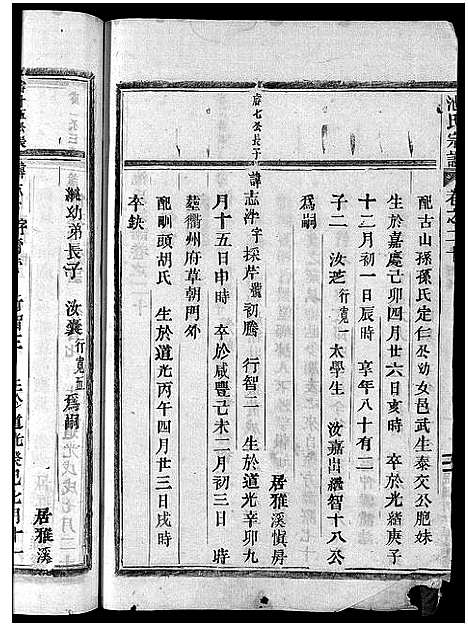 氏宗譜
配古山孫孫氏定仁公幼女邑武生泰交公胞妹
生於嘉慶己卯四月廿六日亥時 卒於光緒庚子
十二月初一日辰時 享年八十有二
子二 汝芝行寬一太學生 汝嘉出繼智十八公
為嗣
居雅溪慎房
唐七公長子 諱志浩字採芹號初騰 行智二 生於道光辛卯九
月十五日申時 卒於咸豐己未二月初三日 時
塟衢州府草朝門外
配畈頭胡氏 生於道光丙午四月廿三日戌時
卒缺
居雅溪
幼弟長子 汝襄行寬五為嗣